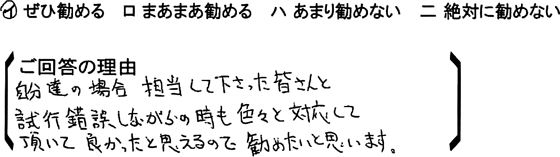 イ ぜひ勧める ロ まあまあ勧める ハ あまり勧めない ニ 絶対に勧めない
ご回答の理由
自分達の場合 担当して下さった皆さんと
試行錯誤しながらの時も色々と対応して
頂いて 良かったと思えるので 勧めたいと思います。